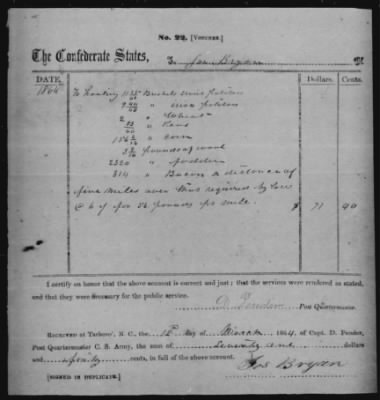 No. 22. [VOUCHER.]
The Confederate States,
To Jos. Bryan
DATE. Dollars. Cents.
1864 To hauling Bushels
"
2 " Wheat
" Peas
" corn
pounds of wool
2320 " fodder
314 " Bacon a distance of
five miles over that required by law
@ 6 ¢ per 56 pounds pr mile $ 71 90
I certify on honor that the above account is correct and just; that the services were rendered as stated,
and that they were necessary for the public service.
D. Pender
Post Quartermaster.
RECEIVED at Tarboro', N. C., the 12 day of March 1864, of Capt. D. Pender,
Post Quartermaster C. S. Army, the sum of Seventy one dollars
and ninety cents, in full of the above account.
Jos Bryan
[SIGNED IN DUPLICATE.]